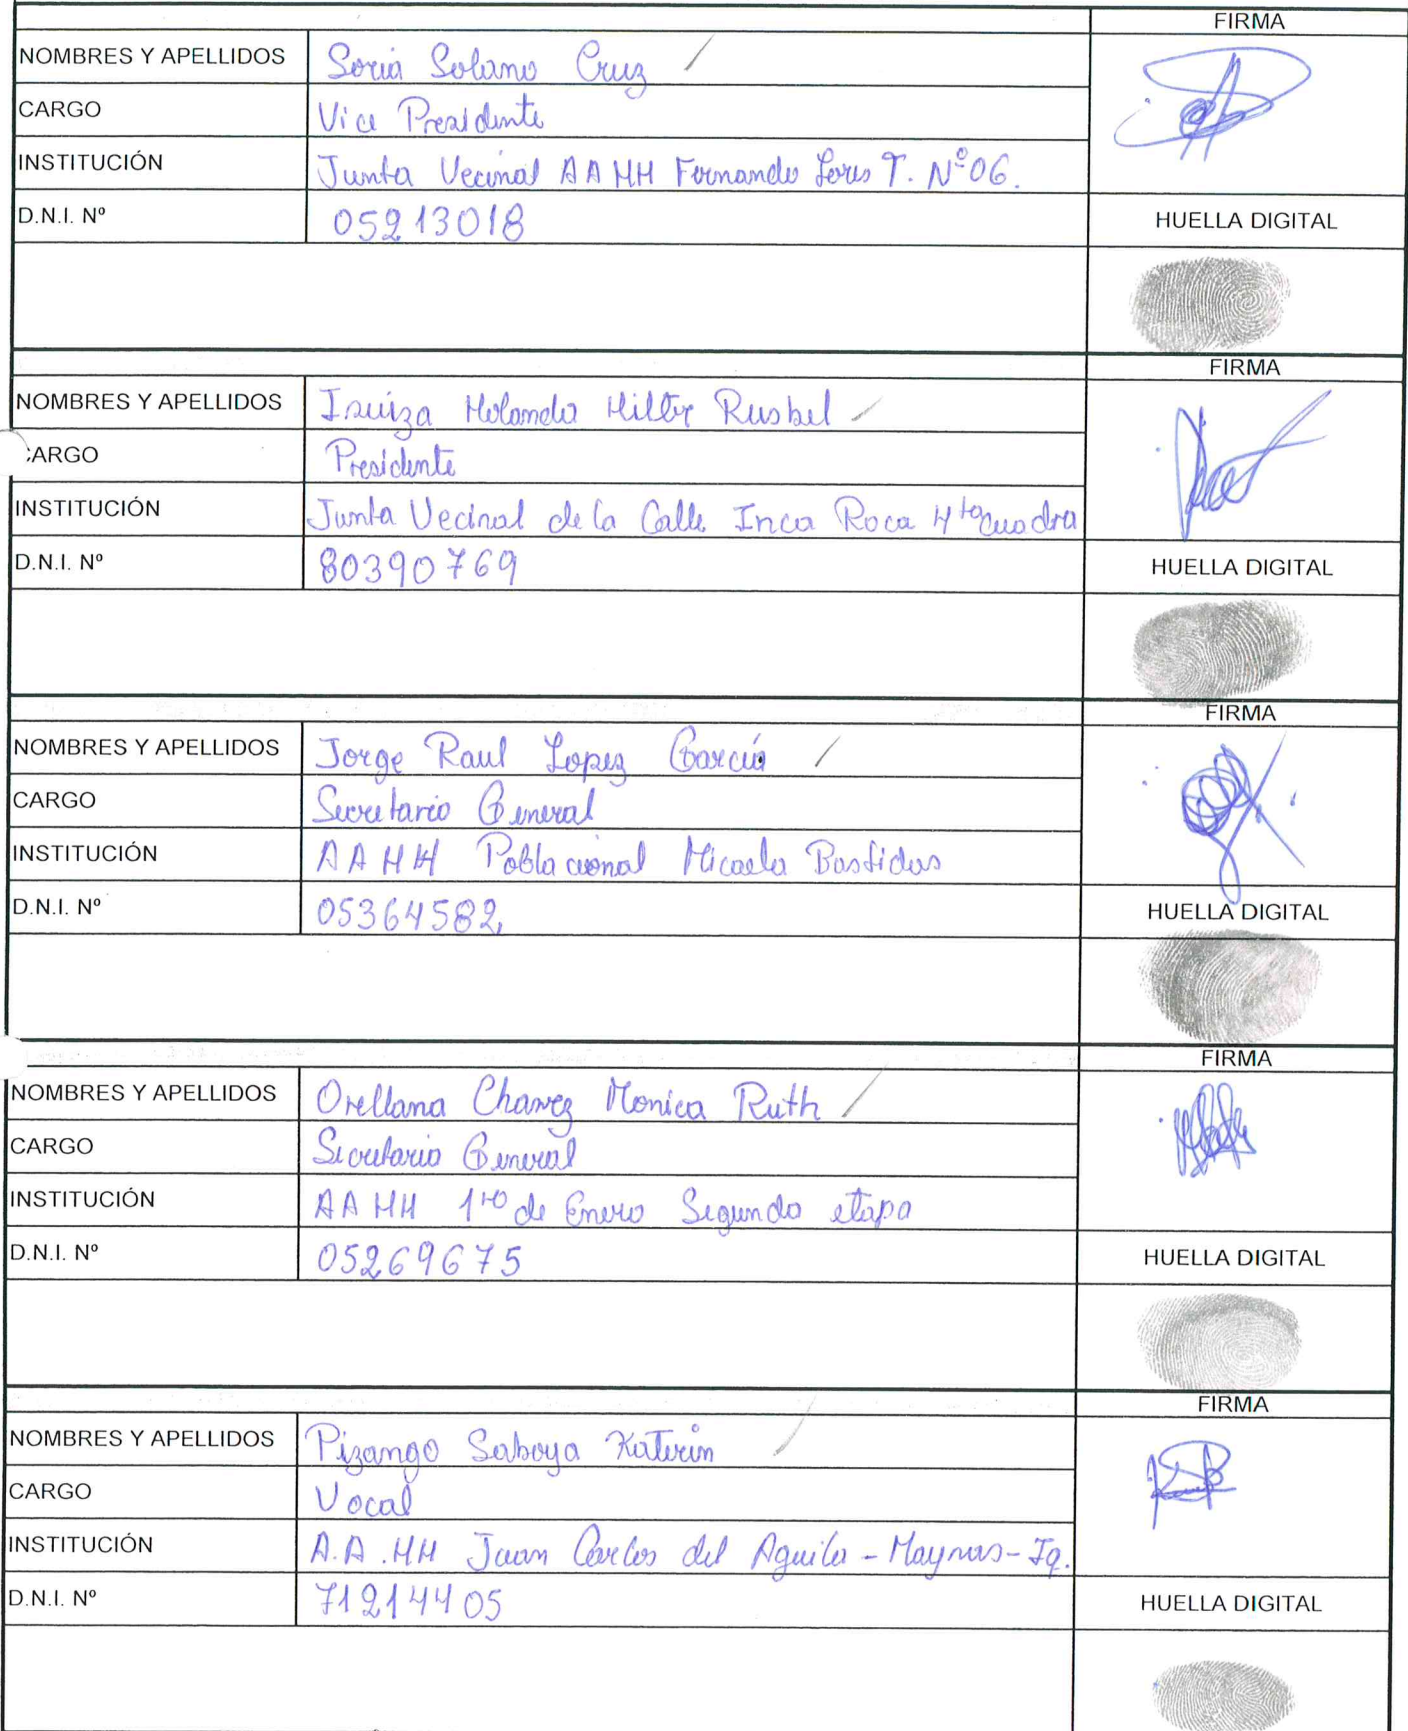 FIRMA
NOMBRES Y APELLIDOS Soria Solano Cruz
CARGO Vice Presidente
INSTITUCIÓN Junta Vecinal AA HH Fernando Lores T. Nº 06.
D.N.I. Nº 05213018 HUELLA DIGITAL
FIRMA
NOMBRES Y APELLIDOS Isuiza Rusbel
CARGO Presidente
INSTITUCIÓN Junta Vecinal de la Calle Inca Roca 4ta cuadra
D.N.I. Nº 80390769 HUELLA DIGITAL
FIRMA
NOMBRES Y APELLIDOS Jorge Raul Lopez García
CARGO Secretario General
INSTITUCIÓN AA HH Poblacional Micaela Bastidas
D.N.I. Nº 05364582 HUELLA DIGITAL
FIRMA
NOMBRES Y APELLIDOS Orellana Chavez Monica Ruth
CARGO Secretario General
INSTITUCIÓN AA HH 1ro de Enero Segunda etapa
D.N.I. Nº 05269675 HUELLA DIGITAL
FIRMA
NOMBRES Y APELLIDOS Pizango Saboya Katerin
CARGO Vocal
INSTITUCIÓN A.A.HH Juan Carlos del Aguila - Maynas - Iq.
D.N.I. Nº 71214405 HUELLA DIGITAL